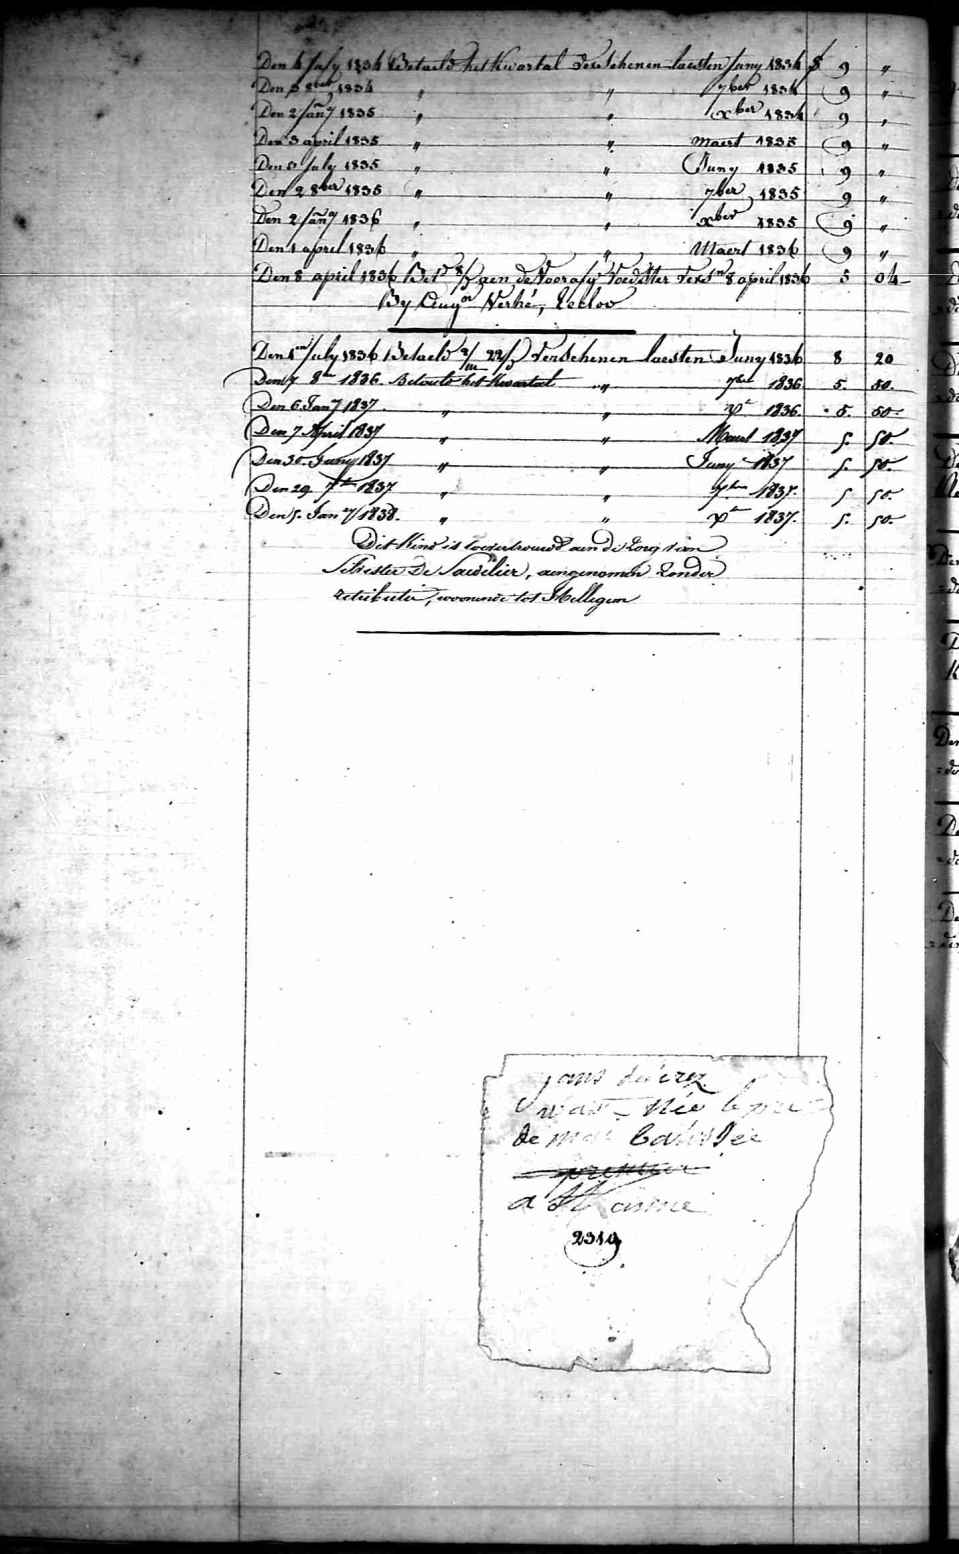 Den 4 July 1834 Betaeld het Kwartal Verschenen laesten Juny 1834 9 "
Den 3 8ber 1834 " " 7ber 1834 9 "
Den 2 Jany 1835 " " xber 1834 9 "
Den 3 april 1835 " " Maert 1835 9 "
Den July 1835 " " Juny 1835 9 "
Den 2 8ber 1835 " " 7ber 1835 9 "
Den 2 Jany 1836 " " xber 1835 9 "
Den 1 april 1836 " " Maert 1836 9 "
Den 8 april 1836 Bet aen de Voedster Versn 8 april 1836 5 04
By Verhé, Eecloo
Den 1 July 1836 Betaeld Verschenen laesten Juny 1836 8 20
Den 7 8re 1836. Betaeld het Kwartael " 7bre 1836 5. 50.
Den 6 Jany 1837. " " xbr 1836. 5. 50.
Den 7 April 1837 " " Maert 1837 5. 50
Den 30. Juny 1837 " " Juny 1837 5. 50.
Den 29. 7br 1837 " " 7br 1837. 5 50.
Den 5. Jany 1838. " " xr 1837. 5. 50.
Dit Kind is toevertrouwd aen de zorg van
De , aengenomen zonder
retributie, woonende tot
née le
de
premier
a St
2319